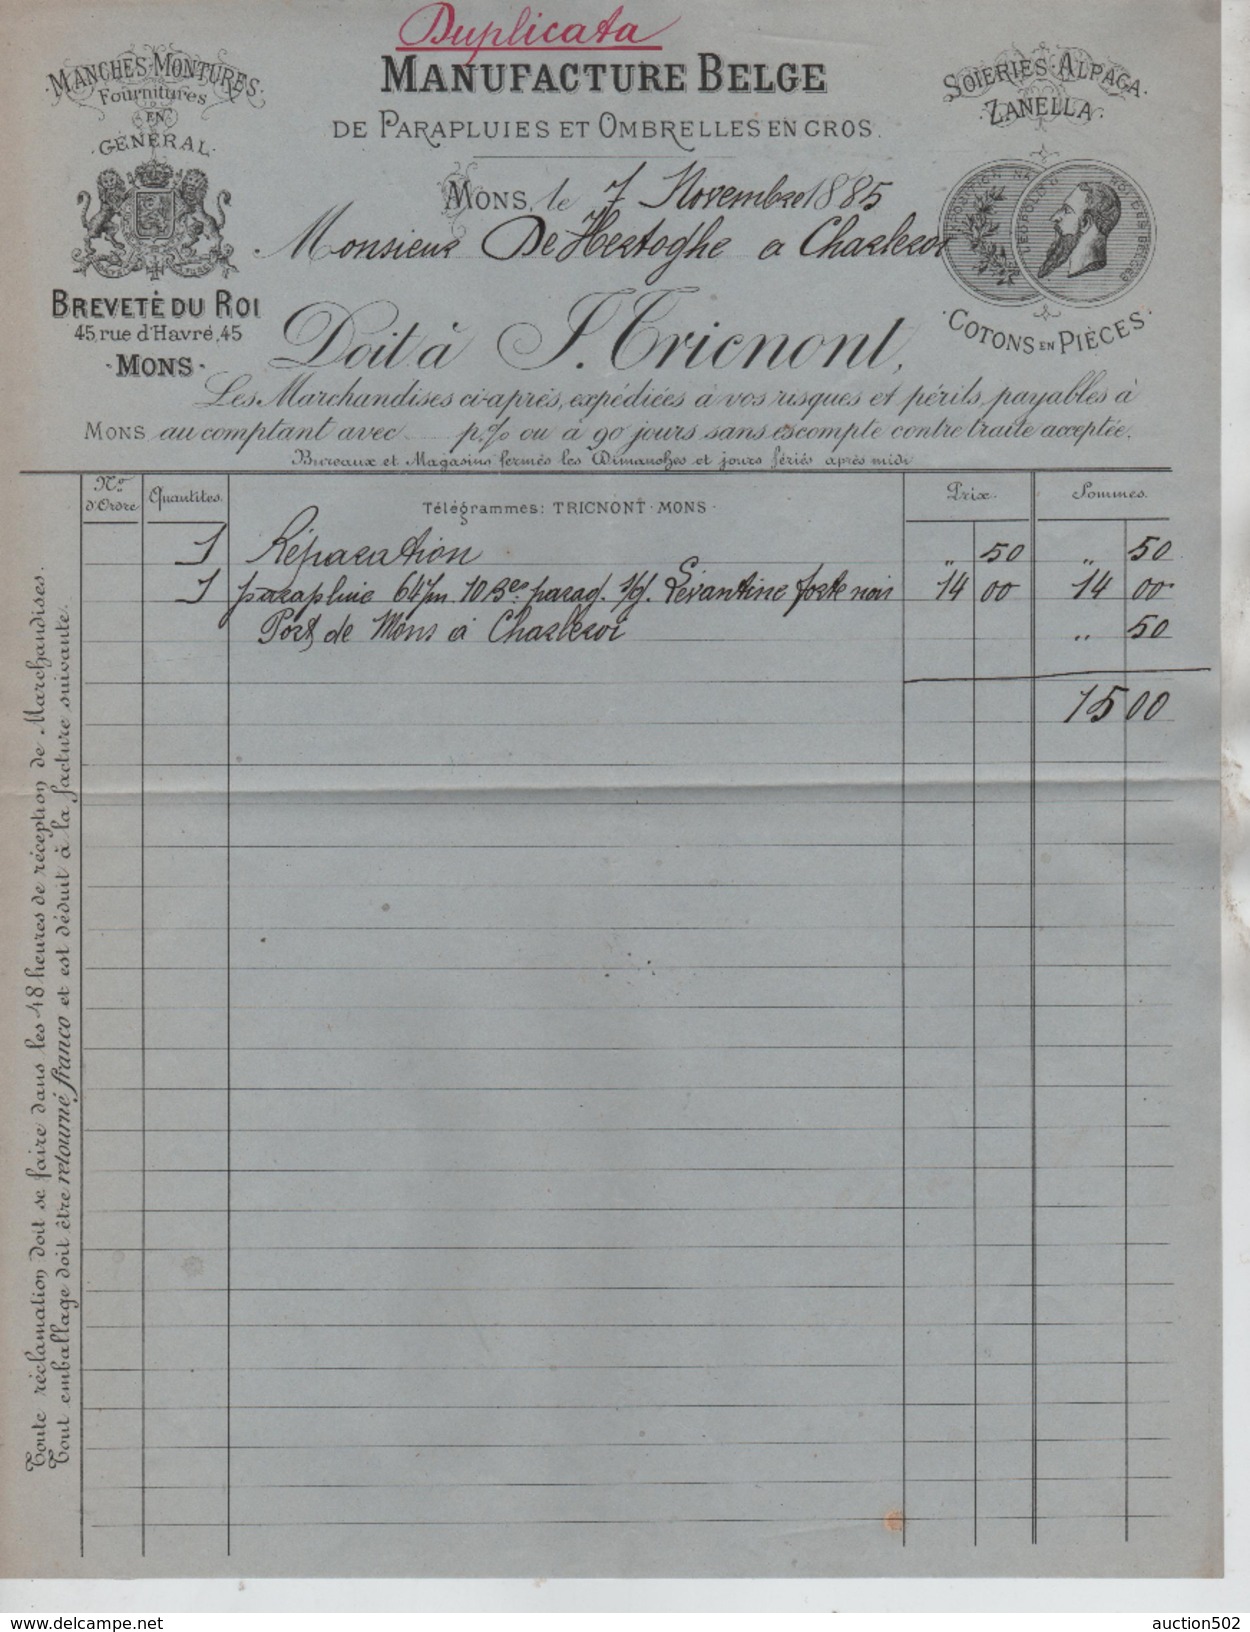 Duplicata
MANCHES-MONTURES
Fournitures
EN
GÉNÉRAL
MANUFACTURE BELGE
DE PARAPLUIES ET OMBRELLES EN GROS.
SOIERIES-ALPAGA
ZANELLA
MONS, le 7 Novembre 1885
Monsieur De Hertoghe a Charleroi
LEOPOLD II ROI DES BELGES
BREVETÉ DU ROI
45, rue d'Havré, 45
MONS
COTONS EN PIÈCES
Doit à J. Tricnont,
Les Marchandises ci-après, expédiées à vos risques et périls, payables à
MONS au comptant avec p.% ou à 90 jours sans escompte contre traite acceptée.
Bureaux et Magasins fermés les Dimanches et jours fériés après midi
Nos d'Ordre Quantités Télégrammes: TRICNONT-MONS Prix. Sommes.
1 Réparation " 50 " 50
1 parapluie 64/m 10 Bes parag. Lévantine forte noir 14 00 14 00
Port de Mons à Charleroi " 50
15 00
Toute réclamation doit se faire dans les 48 heures de réception de Marchandises.
Tout emballage doit être retourné franco et est déduit à la facture suivante.
auction502